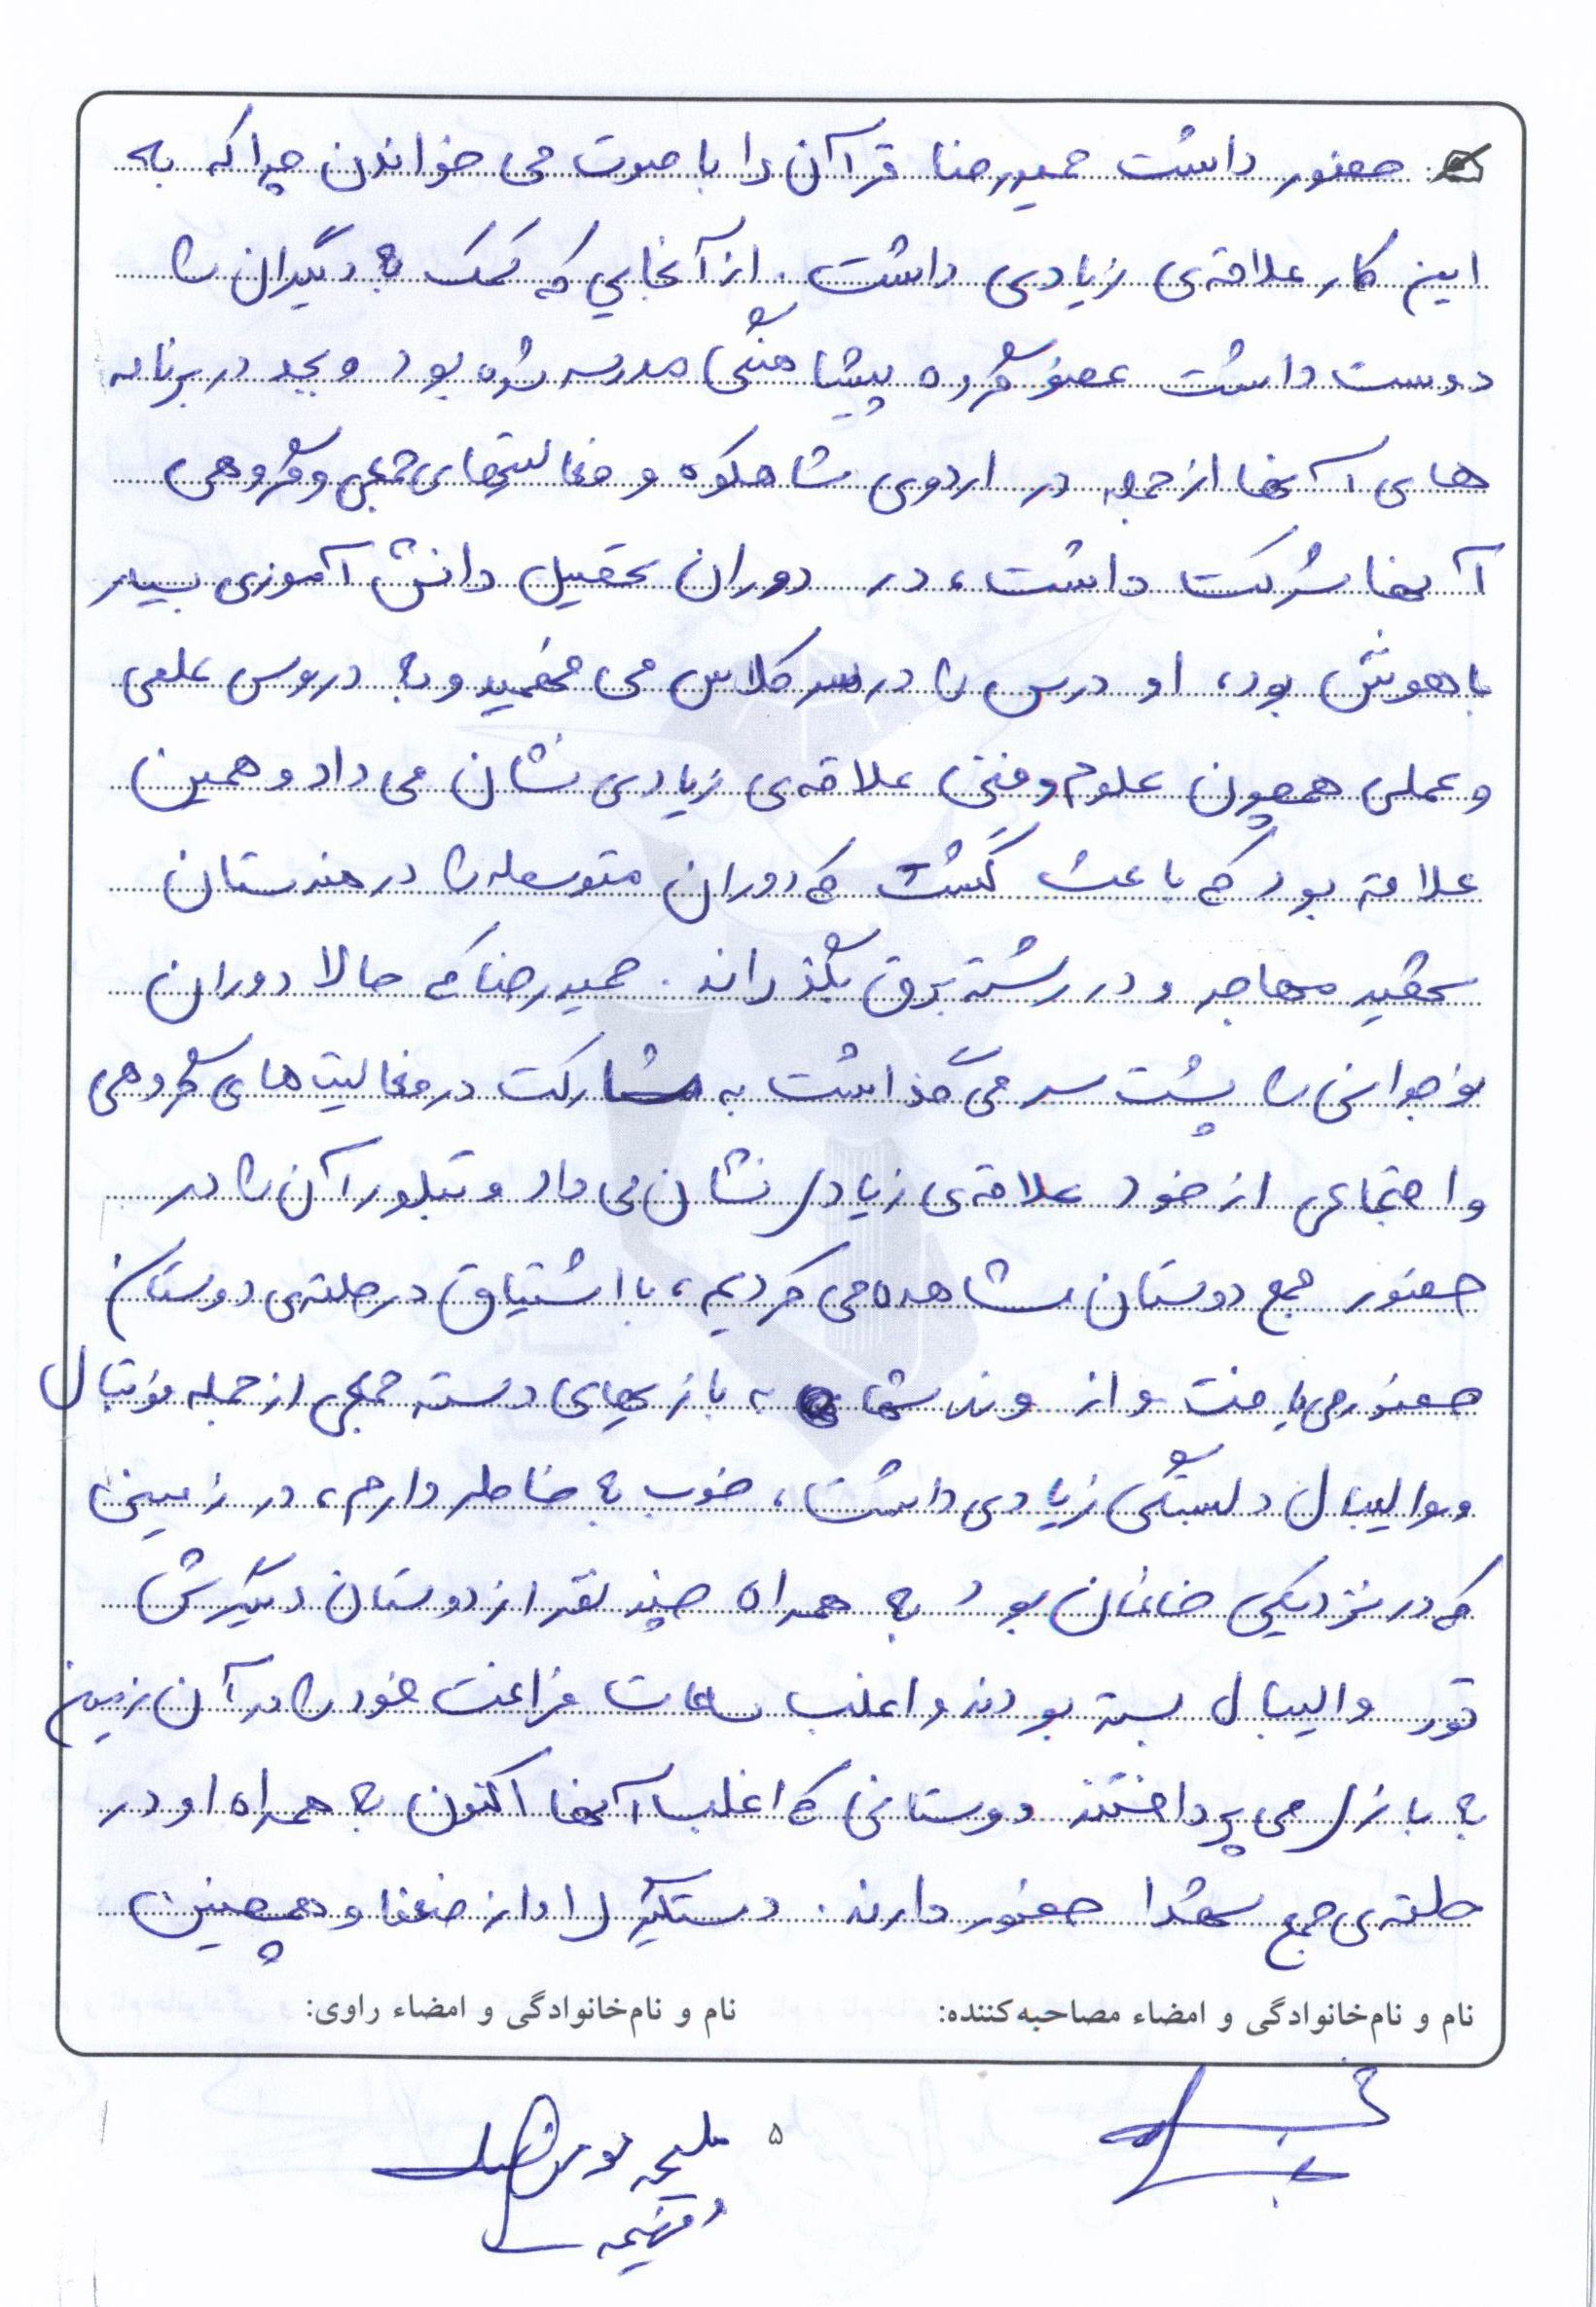 حضور داشت حمیدرضا قرآن را با صوت می خواندن چرا که به
این کار علاقه‌ی زیادی داشت. از آنجایی که کمک به دیگران را
دوست داشت عضو گروه پیشاهنگی مدرسه شده بود و بعد در برنامه
های آنها از جمله در اردوی شاهکوه و فعالیتهای جمعی و گروهی
آنها شرکت داشت، در دوران تحصیل دانش آموزی بسیار
باهوش بود، او درس را در سر کلاس می فهمید و به دروس علمی
و عملی همچون علوم و فنی علاقه‌ی زیادی نشان می داد و همین
علاقه بود که باعث گشت که دوران متوسطه را در هنرستان
شهید مهاجر و در رشته برق بگذراند. حمیدرضا که حالا دوران
نوجوانی را پشت سر می گذاشت به مشارکت در فعالیت های گروهی
و اجتماعی از خود علاقه‌ی زیادی نشان می داد و تبلور آن را در
حضور جمع دوستان مشاهده می کردیم، با اشتیاق در حلقه‌ی دوستان
حضور می یافت و از ورزشها به بازیهای دسته جمعی از جمله فوتبال
و والیبال دلبستگی زیادی داشت، خوب به خاطر دارم، در زمینی
که در نزدیکی خانمان بود به همراه چند نفر از دوستان دیگرش
تور والیبال بسته بودند و اغلب ساعات فراغت خود را در آن زمین
به بازی می پرداختند دوستانی که اغلب آنها اکنون به همراه او در
حلقه‌ی جمع شهدا حضور دارند. دستگیری او از ضعفا و همچنین
نام و نام‌خانوادگی و امضاء مصاحبه‌کننده: نام و نام‌خانوادگی و امضاء راوی:
۵
ملیحه